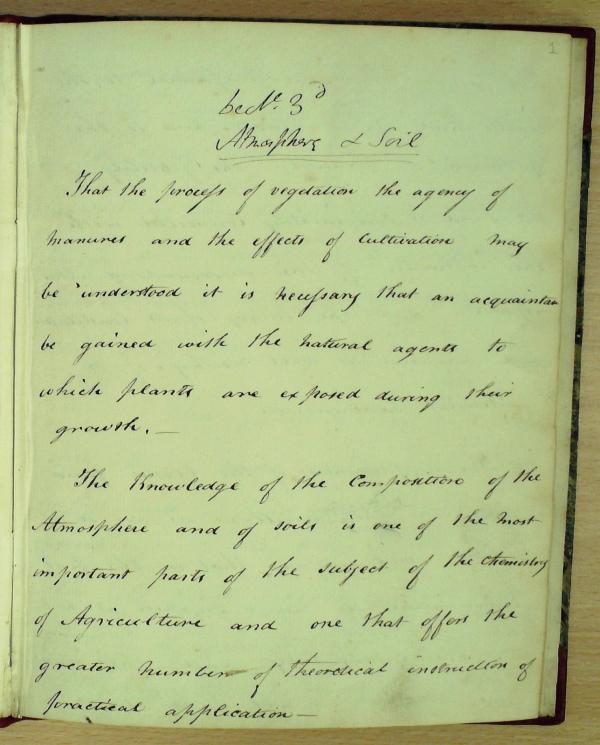 1
Lec. 3d
Atmosphere & Soil
That the process of vegetation the agency of
manures and the effects of cultivation may
be understood it is necessary that an acquaintan
be gained with the natural agents to
which plants are exposed during their
growth. —
The Knowledge of the Composition of the
Atmosphere and of soils is one of the most
important parts of the subject of the Chemistry
of Agriculture and one that offers the
greater number of theoretical instruction of
practical application —